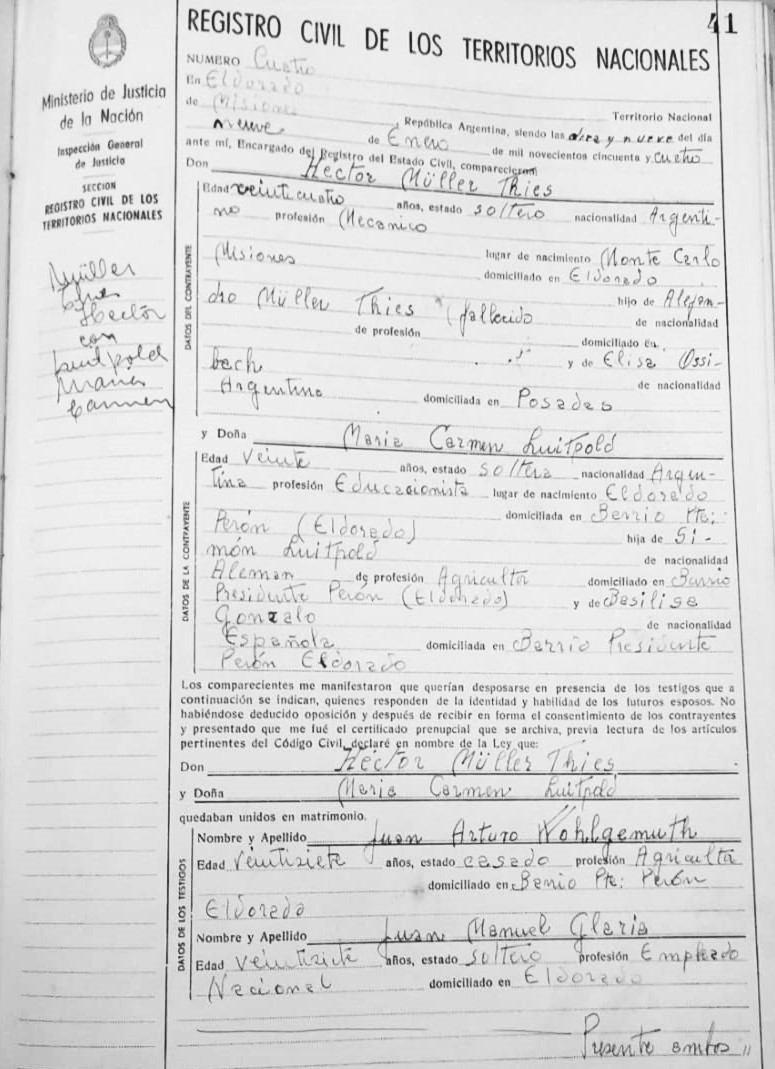 41
Ministerio de Justicia
de la Nación
Inspección General
de Justicia
SECCION
REGISTRO CIVIL DE LOS
TERRITORIOS NACIONALES
Müller
Thies
Hector
con
Luitpold
Maria
Carmen
REGISTRO CIVIL DE LOS TERRITORIOS NACIONALES
NUMERO Cuatro
En Eldorado
de Misiones Territorio Nacional
, República Argentina, siendo las diez y nueve del día
nueve de Enero de mil novecientos cincuenta y cuatro
ante mí, Encargado del Registro del Estado Civil, comparecieron
Don Hector Müller Thies
DATOS DEL CONTRAYENTE
Edad veinticuatro años, estado soltero nacionalidad Argenti-
no profesión Mecanico
lugar de nacimiento Monte Carlo
Misiones domiciliado en Eldorado
hijo de Alejan-
dro Müller Thies (fallecido de nacionalidad
de profesión domiciliado en
y de Elisa Ossi-
bach de nacionalidad
Argentina domiciliada en Posadas
y Doña Maria Carmen Luitpold
DATOS DE LA CONTRAYENTE
Edad Veinte años, estado soltera nacionalidad Argen-
tina profesión Educacionista lugar de nacimiento Eldorado
domiciliada en Barrio Pte:
Perón (Eldorado) hija de Si-
món Luitpold de nacionalidad
Aleman de profesión Agricultor domiciliado en Barrio
Presidente Perón (Eldorado) y de Basilisa
Gonzalo de nacionalidad
Española domiciliada en Barrio Presidente
Perón Eldorado
Los comparecientes me manifestaron que querían desposarse en presencia de los testigos que a
continuación se indican, quienes responden de la identidad y habilidad de los futuros esposos. No
habiéndose deducido oposición y después de recibir en forma el consentimiento de los contrayentes
y presentado que me fué el certificado prenupcial que se archiva, previa lectura de los artículos
pertinentes del Código Civil, declaré en nombre de la Ley que:
Don Héctor Müller Thies
y Doña Maria Carmen Luitpold
quedaban unidos en matrimonio.
DATOS DE LOS TESTIGOS
Nombre y Apellido Juan Arturo Wohlgemuth
Edad Veintisiete años, estado casado profesión Agriculto
domiciliado en Barrio Pte: Perón
Eldorado
Nombre y Apellido Juan Manuel Glaria
Edad Veintisiete años, estado soltero profesión Empleado
Nacional domiciliado en Eldorado
Presente ambos //